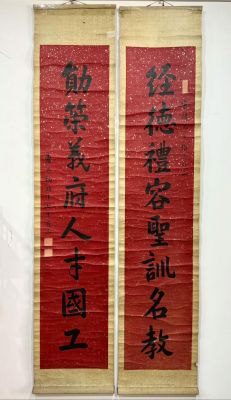 經德禮容聖訓名教
勛榮義府人才國工